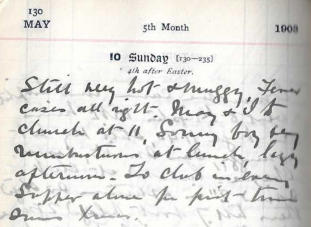 130
MAY 5th Month 1908
10 Sunday [130—235]
4th after Easter.
Still very hot & muggy, Fever
cases all right. May & I to
church at 11, Sonny boy very
rumbustious at lunch, lazy
afternoon. To club in evening
Supper alone for first time
since Xmas.